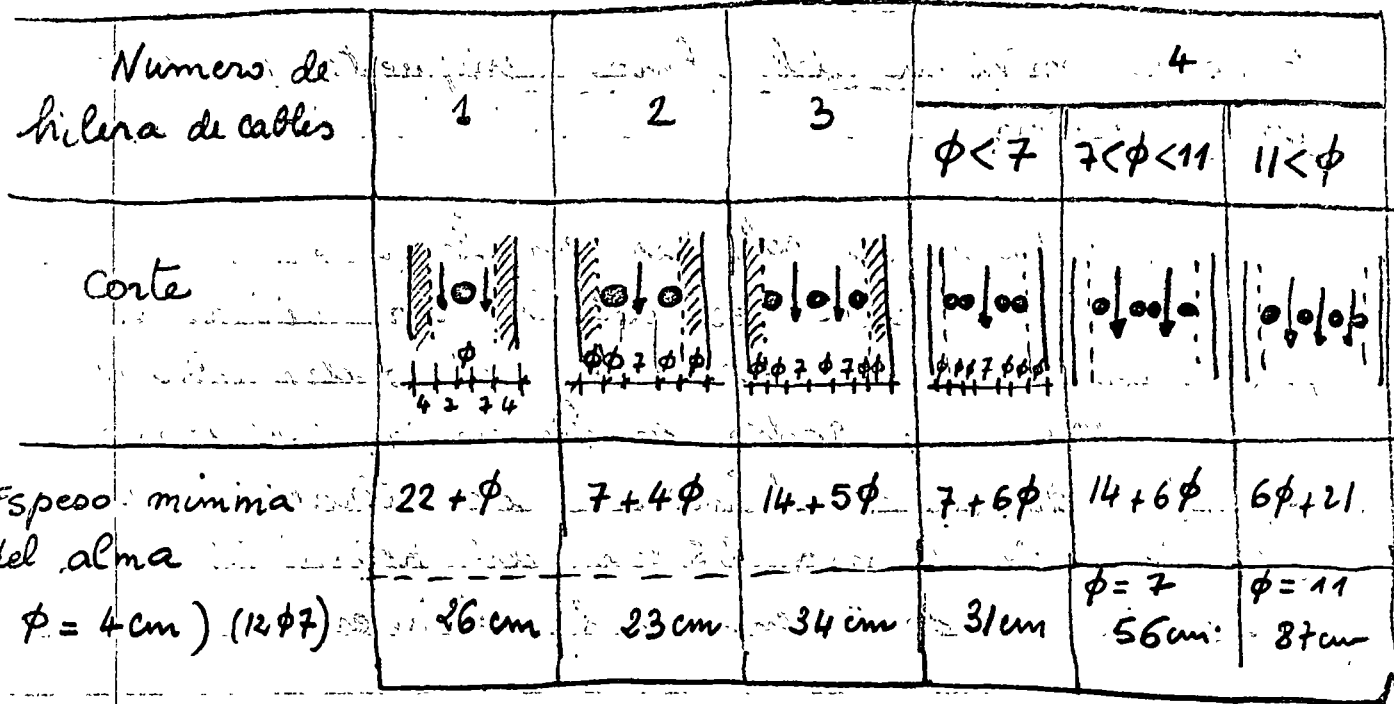 Numero de
hilera de cables
1
2
3
4
ϕ<7
7<ϕ<11
11<ϕ
Corte
ϕ
4 2 7 4
ϕ ϕ 7 ϕ ϕ
ϕ ϕ 7 ϕ 7 ϕ ϕ
ϕ ϕ ϕ 7 ϕ ϕ ϕ
Espeso minima
del alma
22 + ϕ
7 + 4ϕ
14 + 5ϕ
7 + 6ϕ
14 + 6ϕ
6ϕ + 21
ϕ = 4 cm ) (12ϕ7)
26 cm
23 cm
34 cm
31 cm
ϕ = 7
56 cm
ϕ = 11
87 cm